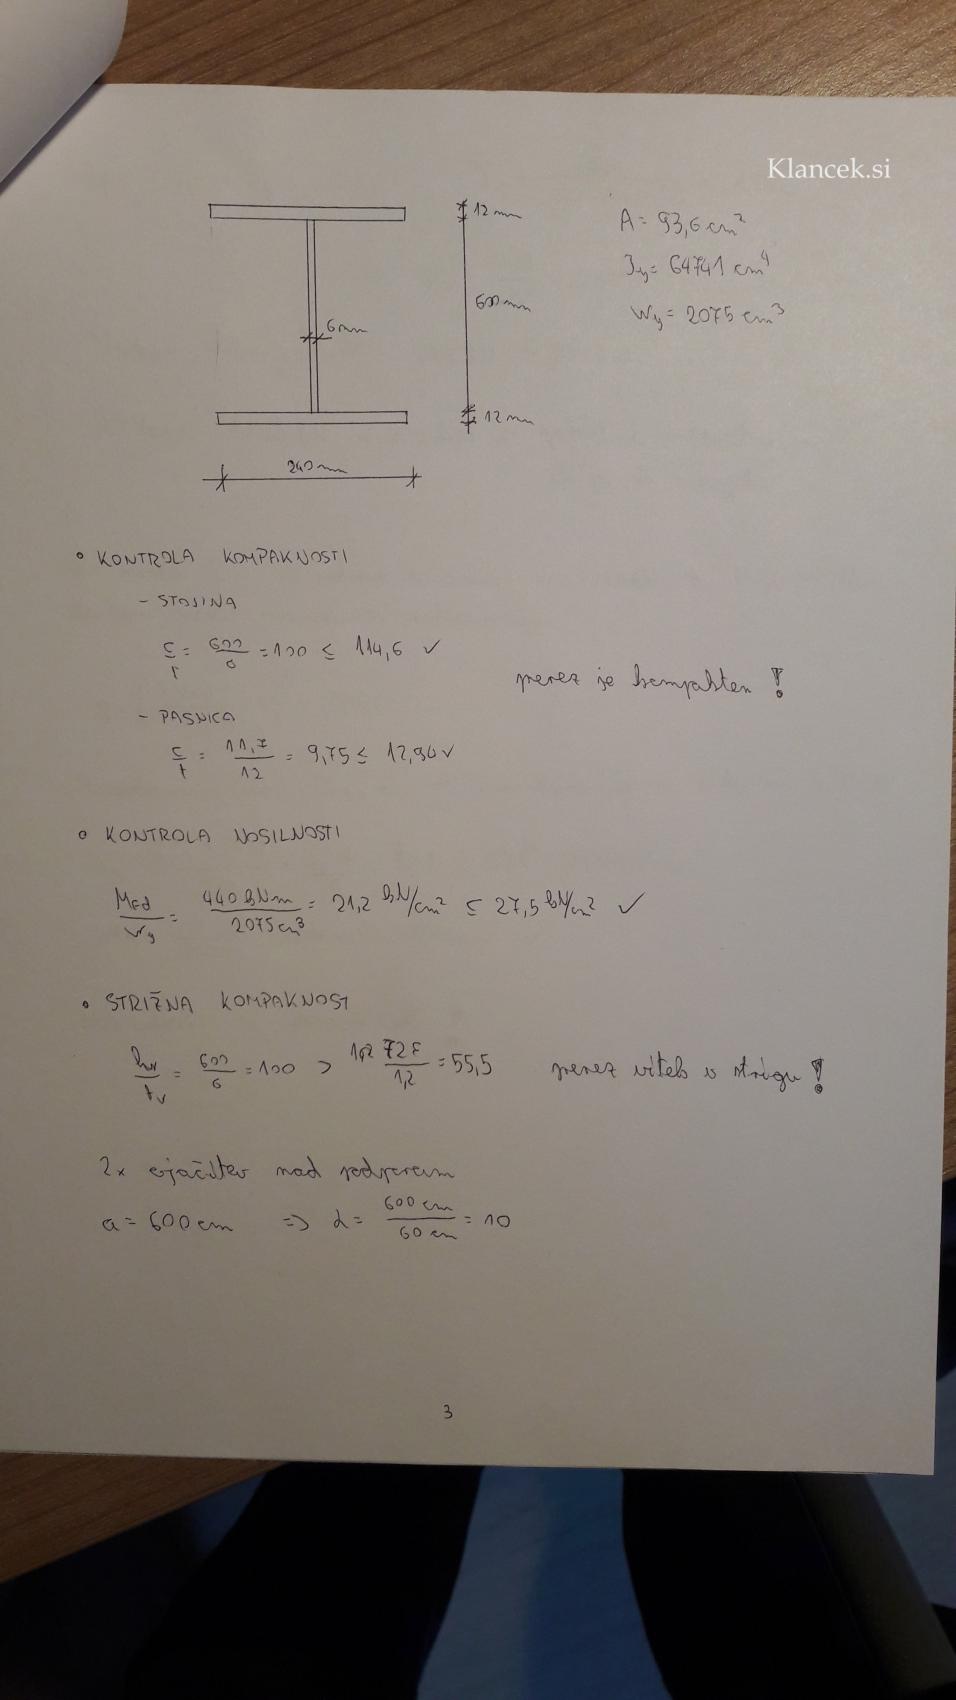 Klancek.si
12 mm
A = 93,6 cm²
Jy = 64741 cm⁴
600 mm
Wy = 2075 cm³
6 mm
12 mm
240 mm
• KONTROLA KOMPAKNOSTI
- STOJINA
c/t = 600/6 = 100 ≤ 114,6 ✓
prerez je kompakten !
- PASNICA
c/t = 11,7/12 = 9,75 ≤ 12,90 ✓
• KONTROLA NOSILNOSTI
MEd/Wy = 440 kNm/2075 cm³ = 21,2 kN/cm² ≤ 27,5 kN/cm² ✓
• STRIŽNA KOMPAKNOST
hw/tv = 600/6 = 100 > 72ε/1,2 = 55,5
prerez vitek v strigu !
2x ojačitev nad podporam
a = 600 cm => α = 600 cm/60 cm = 10
3